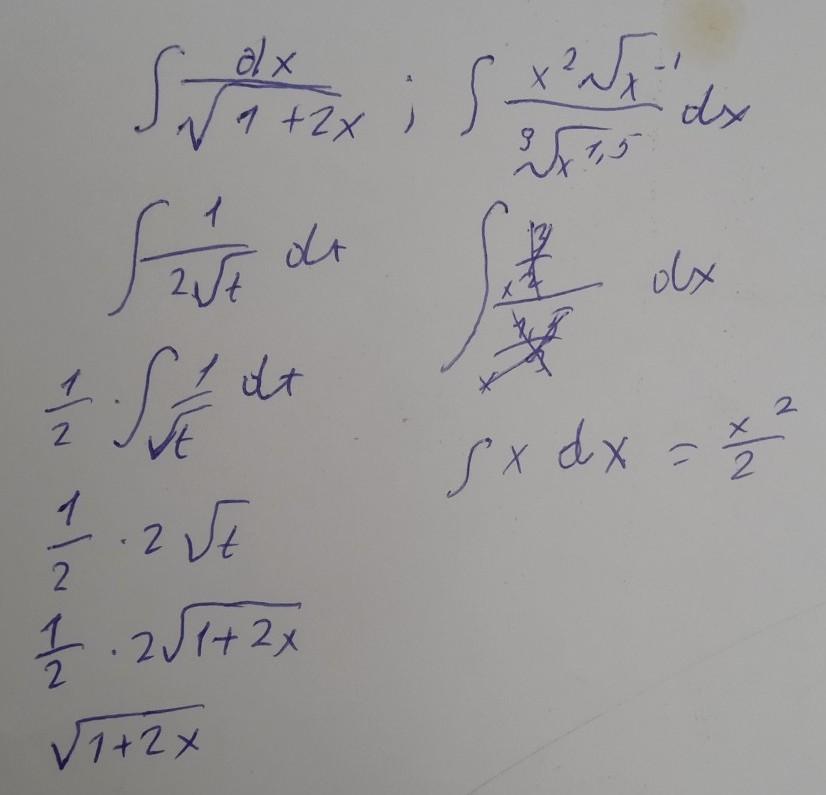 ∫ dx/√(1+2x) ; ∫ x²√(x⁻¹)/∛(x^1,5) dx
∫ 1/(2√t) dt
∫ dx
1/2 · ∫ 1/√t dt
∫ x dx = x²/2
1/2 · 2√t
1/2 · 2√(1+2x)
√(1+2x)